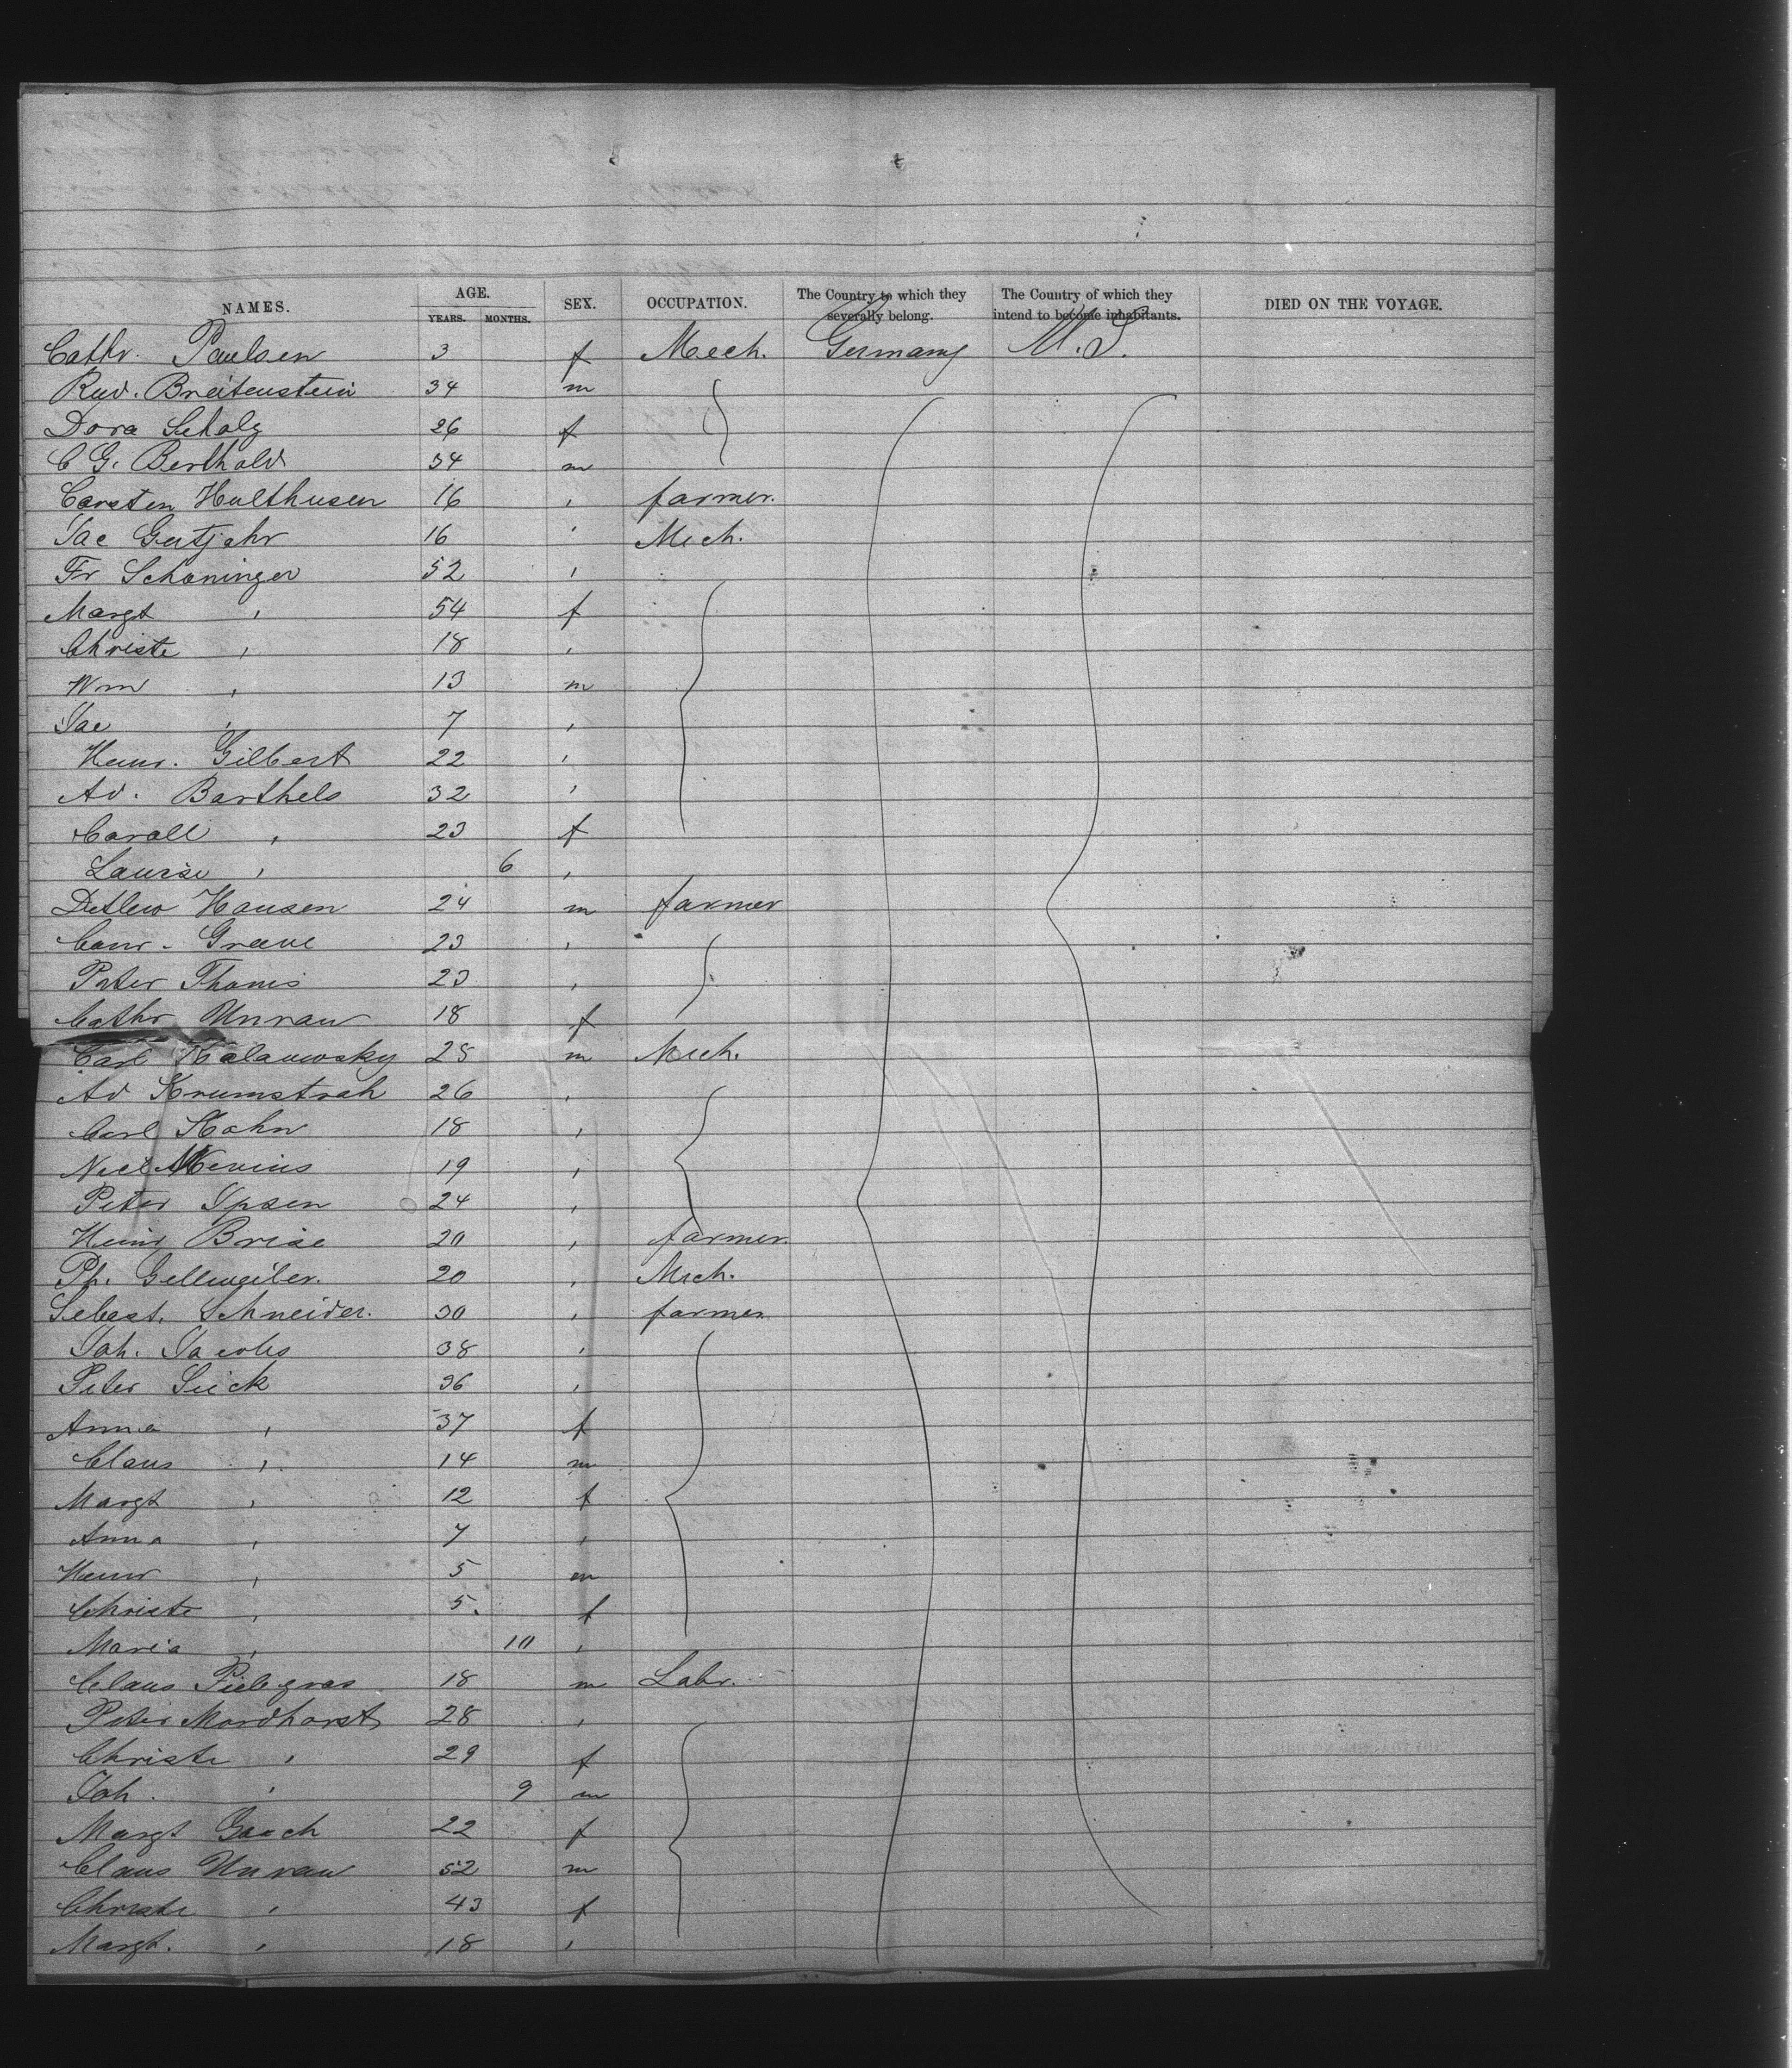 NAMES. AGE. YEARS. MONTHS. SEX. OCCUPATION. The Country to which they severally belong. The Country of which they intend to become inhabitants. DIED ON THE VOYAGE.
Cathr. Paulsen 3 f Mech. Germany U.S.
Rud. Breitenstein 34 m
Dora Scholz 26 f
C G. Berthold 34 m
Carsten Hulthusen 16 , farmer.
Jac Gutjahr 16 , Mech.
Fr Schoninger 52 ,
Margt , 54 f
Christe , 18 ,
Wm , 13 m
Jac , 7 ,
Heinr. Gilbert 22 ,
Ad. Barthels 32 ,
Caroll , 23 f
Laurse , 6 ,
Detlew Hansen 24 m farmer
Conr. Greeve 23 ,
Peter Thoms 23 ,
Cathr Unrau 18 f
Carl 28 m Mech.
Ad Krumstrah 26 ,
Carl Hahn 18 ,
Mevius 19 ,
Peter Ipsen 24 ,
Heinr Brise 20 , farmer.
Ph. Gellweiler. 20 , Mech.
Sebast. Schneider. 30 , farmer.
Joh. Jacobs 38 ,
Peter Sieck 36 ,
Anna , 37 f
Claus , 14 m
Margt , 12 f
Anna , 7 ,
Heinr , 5 m
Christe , 5. f
Maria , 10 ,
Claus Pielegras 18 m Labr.
Peter Mordhorst 28 ,
Christe , 29 f
Joh. , 9 m
Margt Gosch 22 f
Claus Unrau 52 m
Christe , 43 f
Margt. , 18 ,